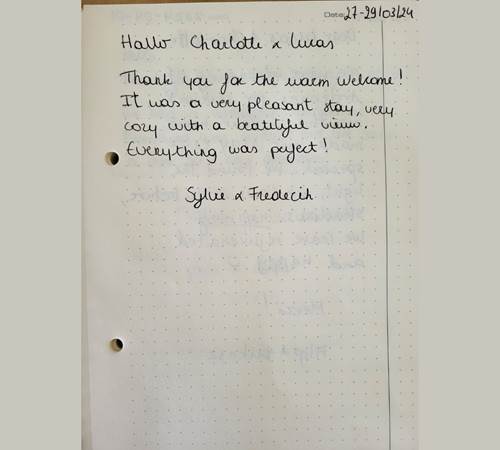 Date: 27-29/03/24
Hallo Charlotte & Lucas
Thank you for the warm welcome!
It was a very pleasant stay, very
cozy with a beatiful view.
Everything was perfect!
Sylvie & Frederik